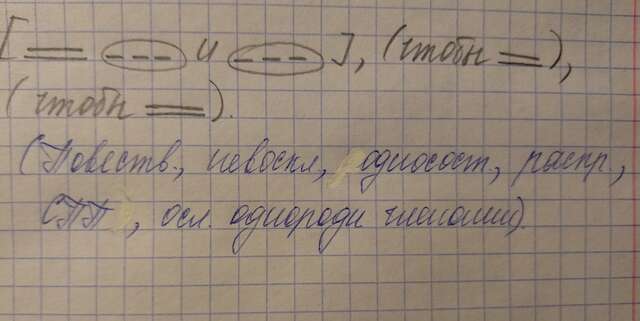 [ и ], (чтобы ),
(чтобы ).
(Повеств., невоскл, односост, распр.,
СПП, осл. однородн членами).